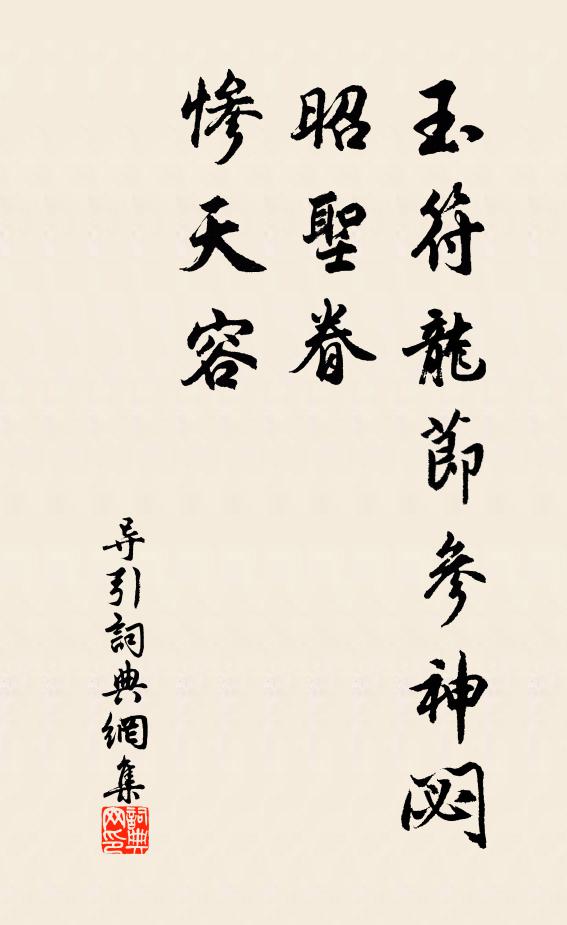 玉符龍節參神閟
昭聖眷
慘天容
导引詞典網集
詞典網印